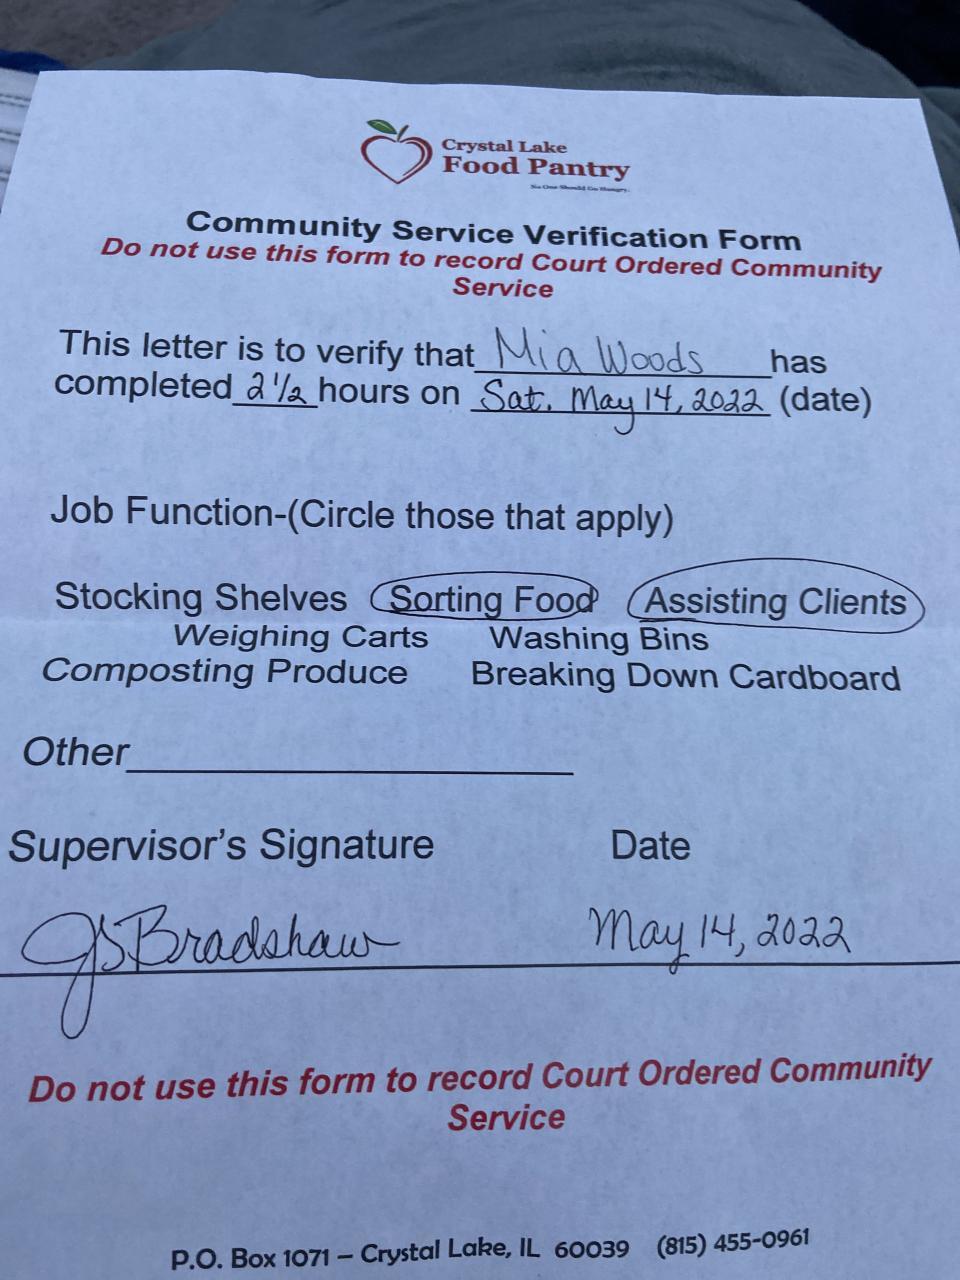 Crystal Lake
Food Pantry
No One Should Go Hungry.
Community Service Verification Form
Do not use this form to record Court Ordered Community
Service
This letter is to verify that Mia Woods has
completed 2 1/2 hours on Sat. May 14, 2022 (date)
Job Function-(Circle those that apply)
Stocking Shelves Sorting Food Assisting Clients
Weighing Carts Washing Bins
Composting Produce Breaking Down Cardboard
Other
Supervisor's Signature Date
JSBradshaw May 14, 2022
Do not use this form to record Court Ordered Community
Service
P.O. Box 1071 – Crystal Lake, IL 60039 (815) 455-0961